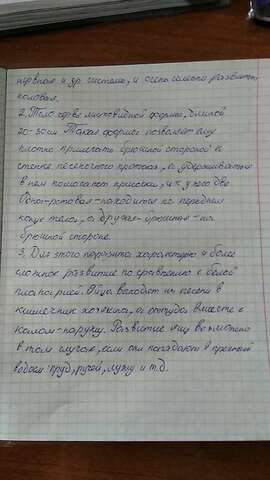 нервная и др. системы, и очень сильно развита
половая.
2. Тело сосв. листовидной формы, длиной
20-30мм Такая форма позволяет ему
плотно прилегать брюшной стороной к
стенке печеночного протока, а удерживаться
в нем помогают присоски, их у него две
Одна-ротовая-находится на переднем
конце тела, а другая-брюшная-на
брюшной стороне.
3. Для этого паразита характерно и более
сложное развитие по сравнению с белой
планарией. Яйца выходят из печени в
кишечник хозяина, а оттуда вместе с
калом-наружу. Развитие яиц возможно
в том случае, если они попадают в пресный
водоем: пруд, ручей, лужу и т.д.